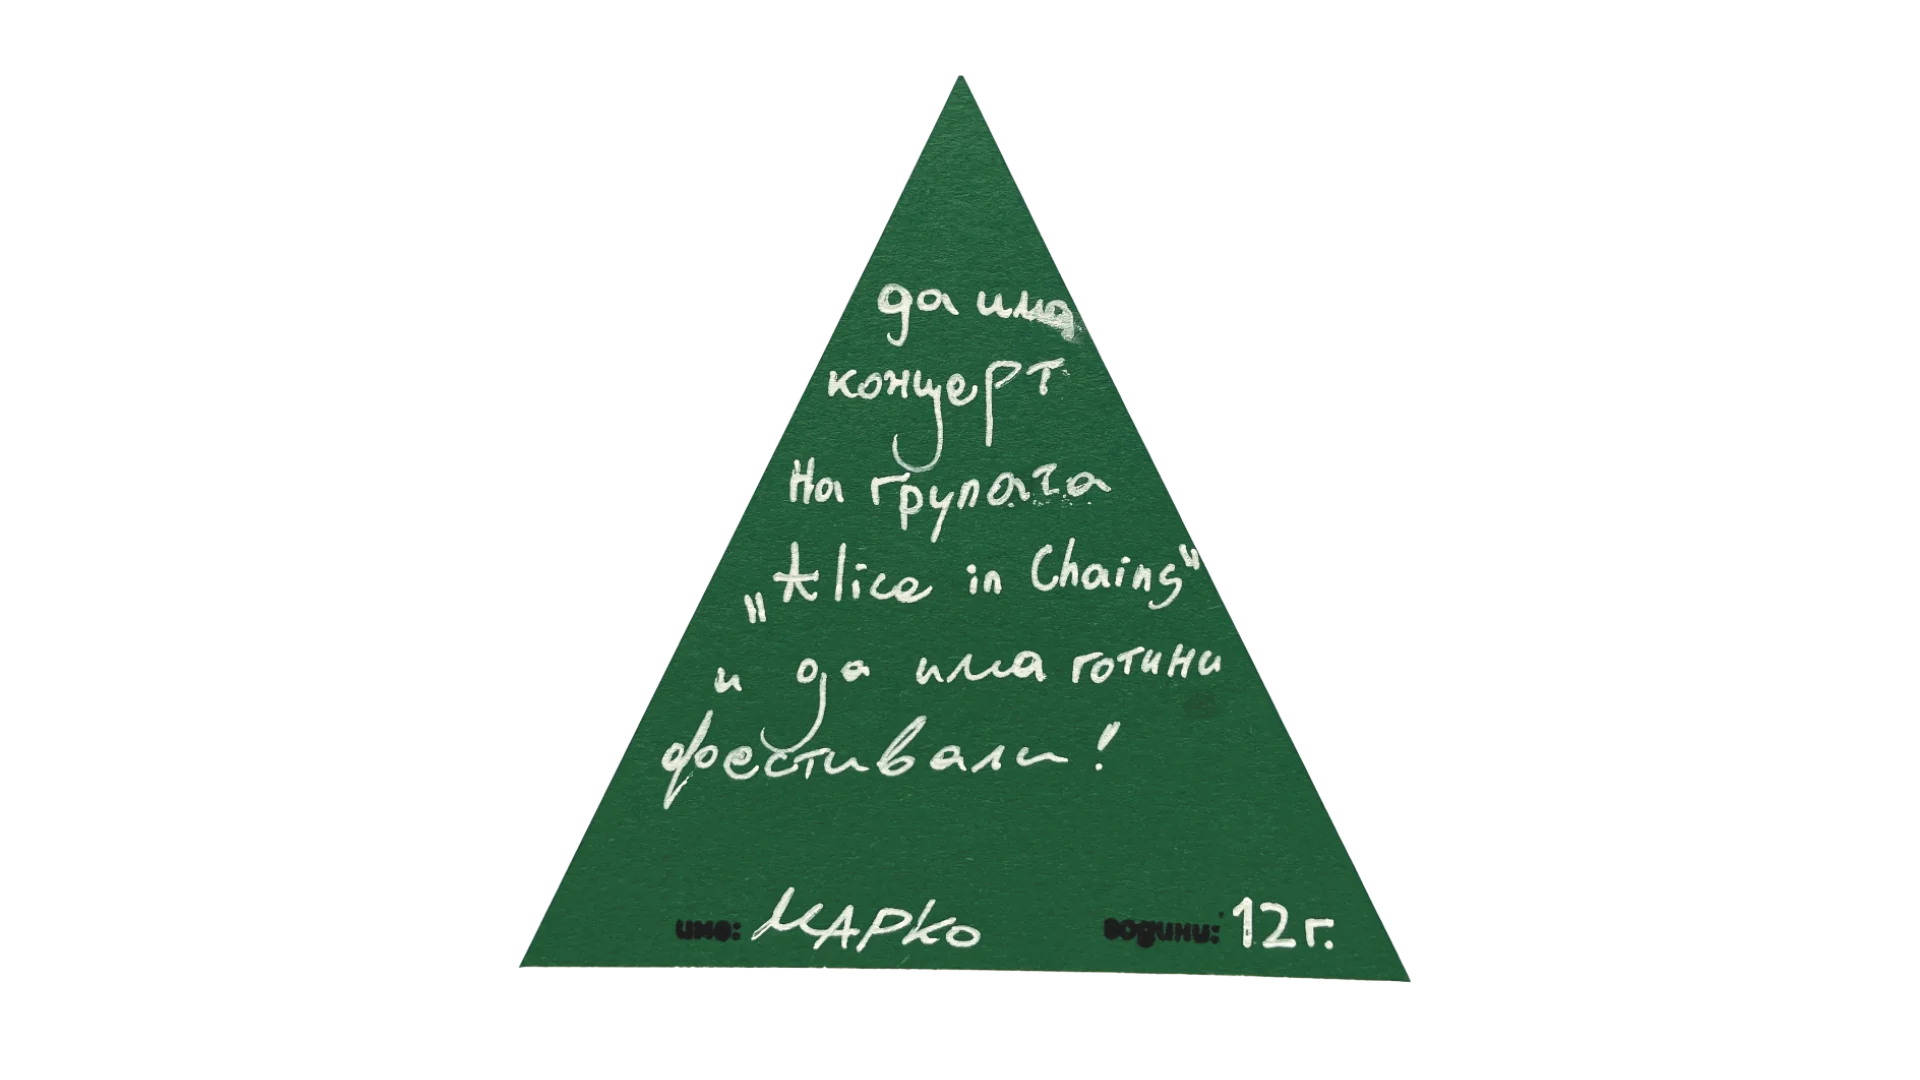 да има
концерт
На групата
„Alice in Chains“
и да има готини
фестивали!
име: МАРКО години: 12 г.